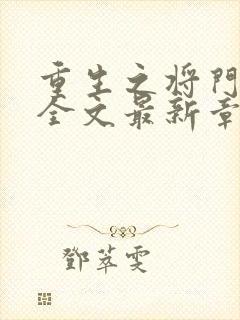 重生之将门
全文最新章
鄧萃雯